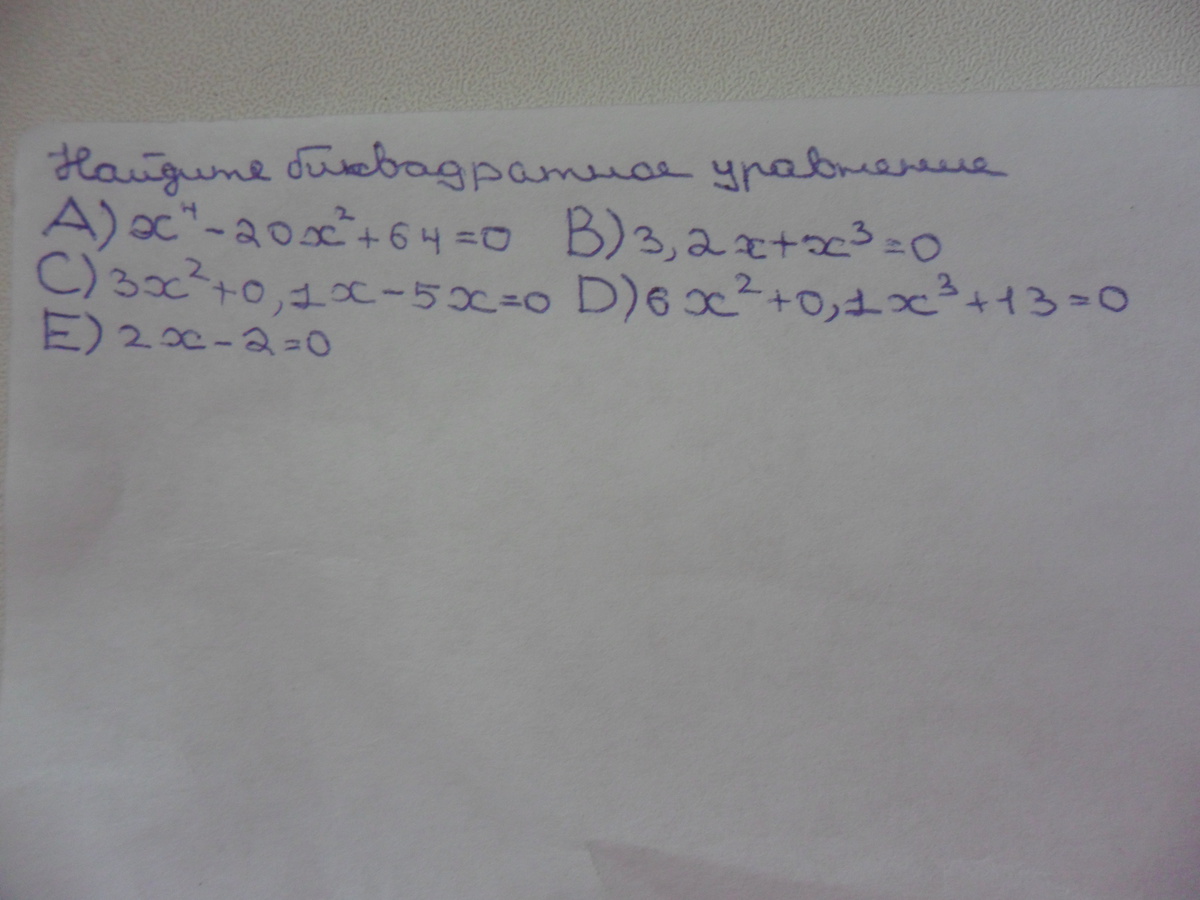 Найдите биквадратное уравнение
A) x⁴-20x²+64=0 B) 3,2x+x³=0
C) 3x²+0,1x-5x=0 D) 6x²+0,1x³+13=0
E) 2x-2=0